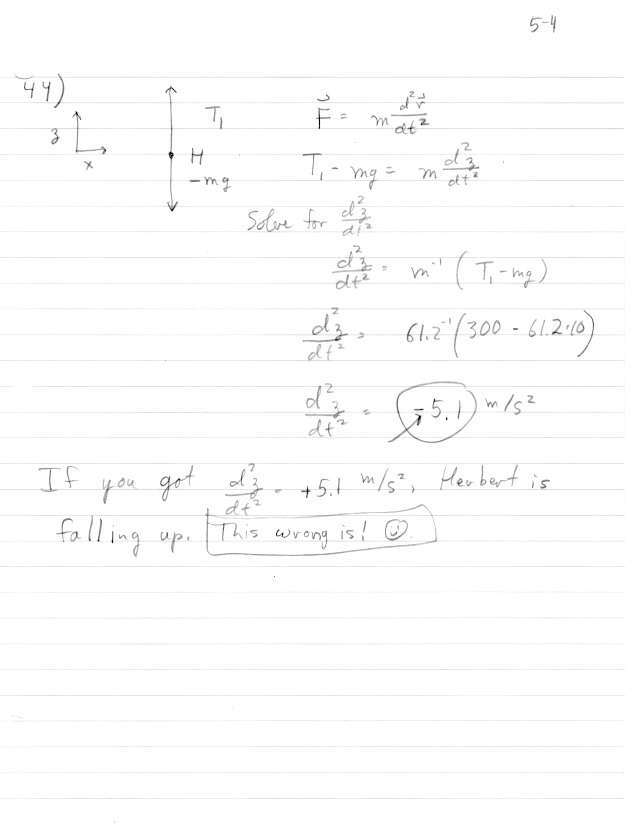 5-4
44)
z
x
T₁
H
-mg
F⃗ = m d²r⃗/dt²
T₁ - mg = m d²z/dt²
Solve for d²z/dt²
d²z/dt² = m⁻¹ (T₁ - mg)
d²z/dt² = 61.2⁻¹ (300 - 61.2·10)
d²z/dt² = -5.1 m/s²
If you got d²z/dt² = +5.1 m/s², Herbert is
falling up. This wrong is! ☺.